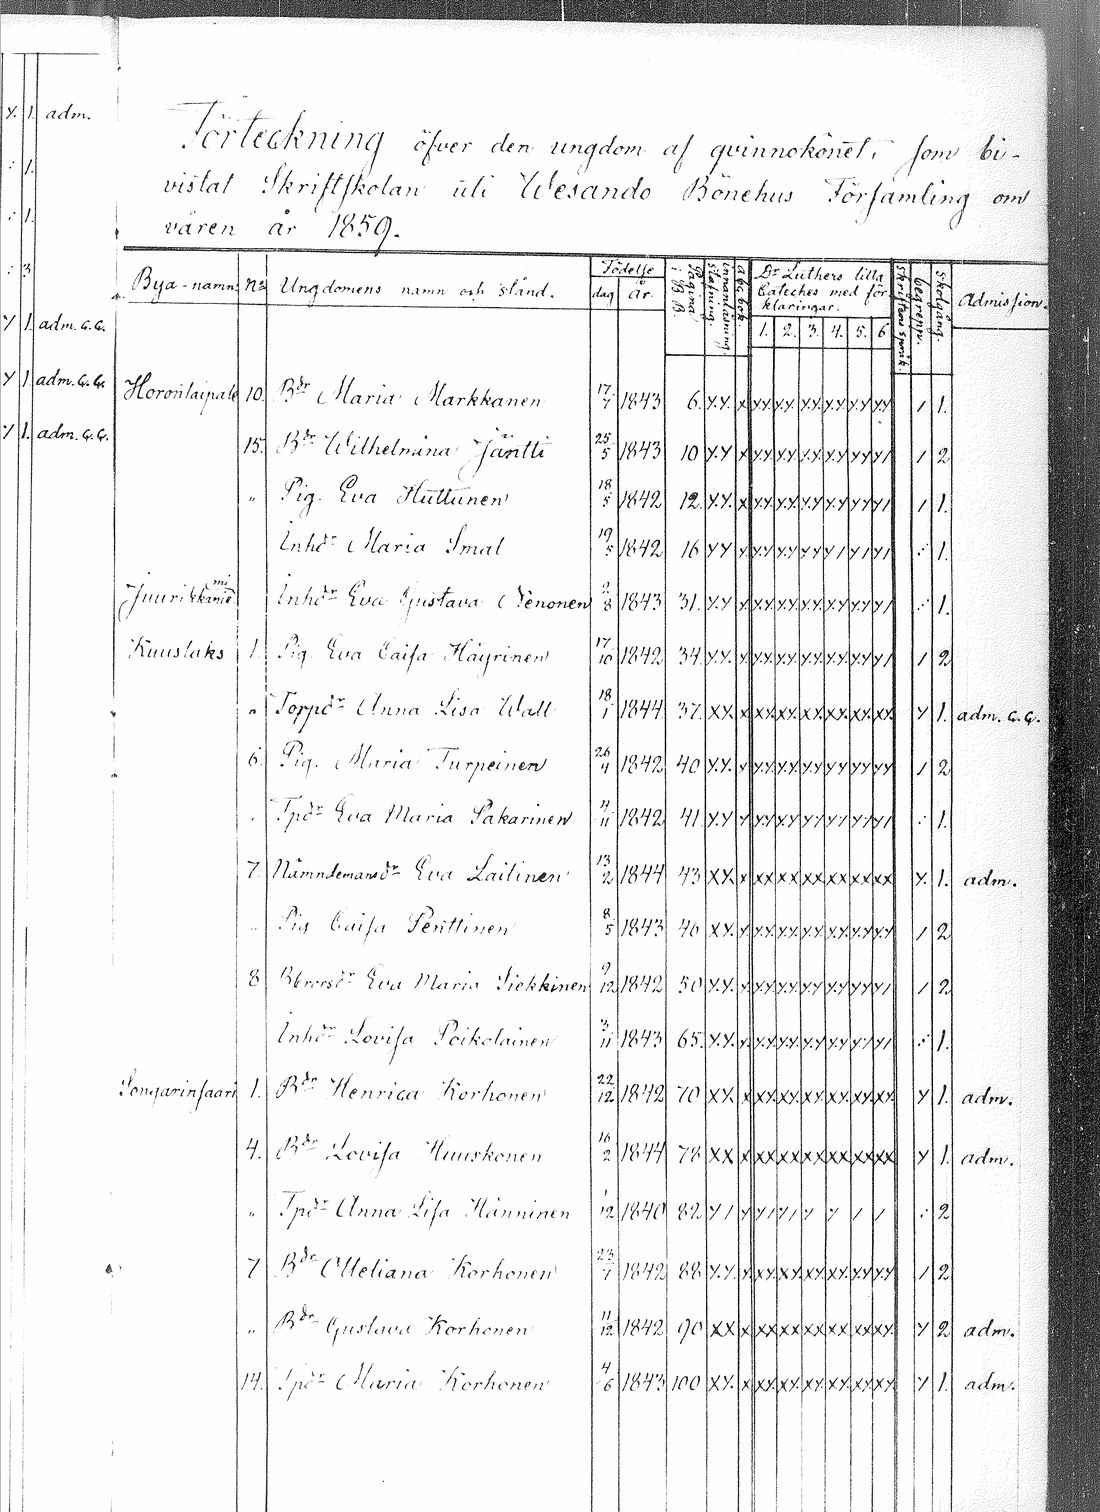 Y. 1. adm.
1.
1.
3
Y 1. adm. G.G.
Y 1. adm. G.G.
Y 1. adm. G.G.
Förteckning öfver den ungdom af qvinnokönet, som bi-
vistat Skriftskolan uti Wesando Bönehus Församling om
våren år 1859.
Bya-namn. No Ungdomens namn och stånd. Födelse dag år. Pagina i H.B. Innanläsning. a.b.c. bok. Dr Luthers lilla Cateches med förklaringar. 1. 2. 3. 4. 5. 6 Skriftens språk. begrepp. Skolgång. Admission.
Horontaipale 10. Bdr Maria Markkanen 17/7 1843 6. Y.Y. x YY YY YY YY YY YY / 1.
15. Bdr Wilhelmina Jäntti 25/5 1843 10 Y.Y x YY YY YY YY YY Y/ / 2
" Pig. Eva Huttunen 18/5 1842 12 Y.Y. x YY YY YY YY YY Y/ / 1.
Inhdr Maria Smal 19/5 1842 16 YY x YY YY YY Y/ Y/ Y/ 1.
Juurikkaniemi Inhdr Eva Gustava Nenonen 2/8 1843 31. Y.Y x YY YY YY YY YY Y/ 1.
Kuuslaks 1. Pig. Eva Caisa Häyrinen 17/10 1842 34 Y.Y. Y YY YY YY YY YY Y/ / 2
" Torpdr Anna Lisa Wall 18/1 1844 37. XX. x XX XX XX XX XX XX Y 1. adm. G.G.
6. Pig. Maria Turpeinen 26/4 1842 40 Y.Y. Y YY YY YY YY YY YY / 2
Tpdr Eva Maria Pakarinen 4/11 1842 41. Y.Y Y YY YY YY Y/ Y/ Y/ 1.
7. Nämndemansdr Eva Laitinen 13/2 1844 43 XX. x XX XX XX XX XX XX Y. 1. adm.
" Pig. Caisa Penttinen 8/5 1843 46 XY. Y YY YY YY YY YY YY / 2
8 Eva Maria Siekkinen 9/12 1842 50 Y.Y. Y YY YY YY YY YY Y/ / 2
Inhdr Lovisa Poikolainen 3/11 1843 65. Y.Y. Y YY YY YY YY Y/ Y/ 1.
Songarinsaari 1. Bdr Henrica Korhonen 22/12 1842 70 XX. x XX XX XX XX XX XX Y 1. adm.
4. Bdr Lovisa Huuskonen 16/2 1844 78 XX x XX XX XX XX XX XX Y 1. adm.
" Tpdr Anna Lisa Hänninen 1/12 1840 82 Y/ Y Y/ Y/ Y Y / / 2
7 Bdr Otteliana Korhonen 23/7 1842 88 Y.Y. Y XY XY XY YY YY YY / 2
" Bdr Gustava Korhonen 11/12 1842 90 XX x XX XX XX XX XX XY Y 2 adm.
14. Tpdr Maria Korhonen 4/6 1843 100 XY. x XY XY XY XY XY XY Y 1. adm.